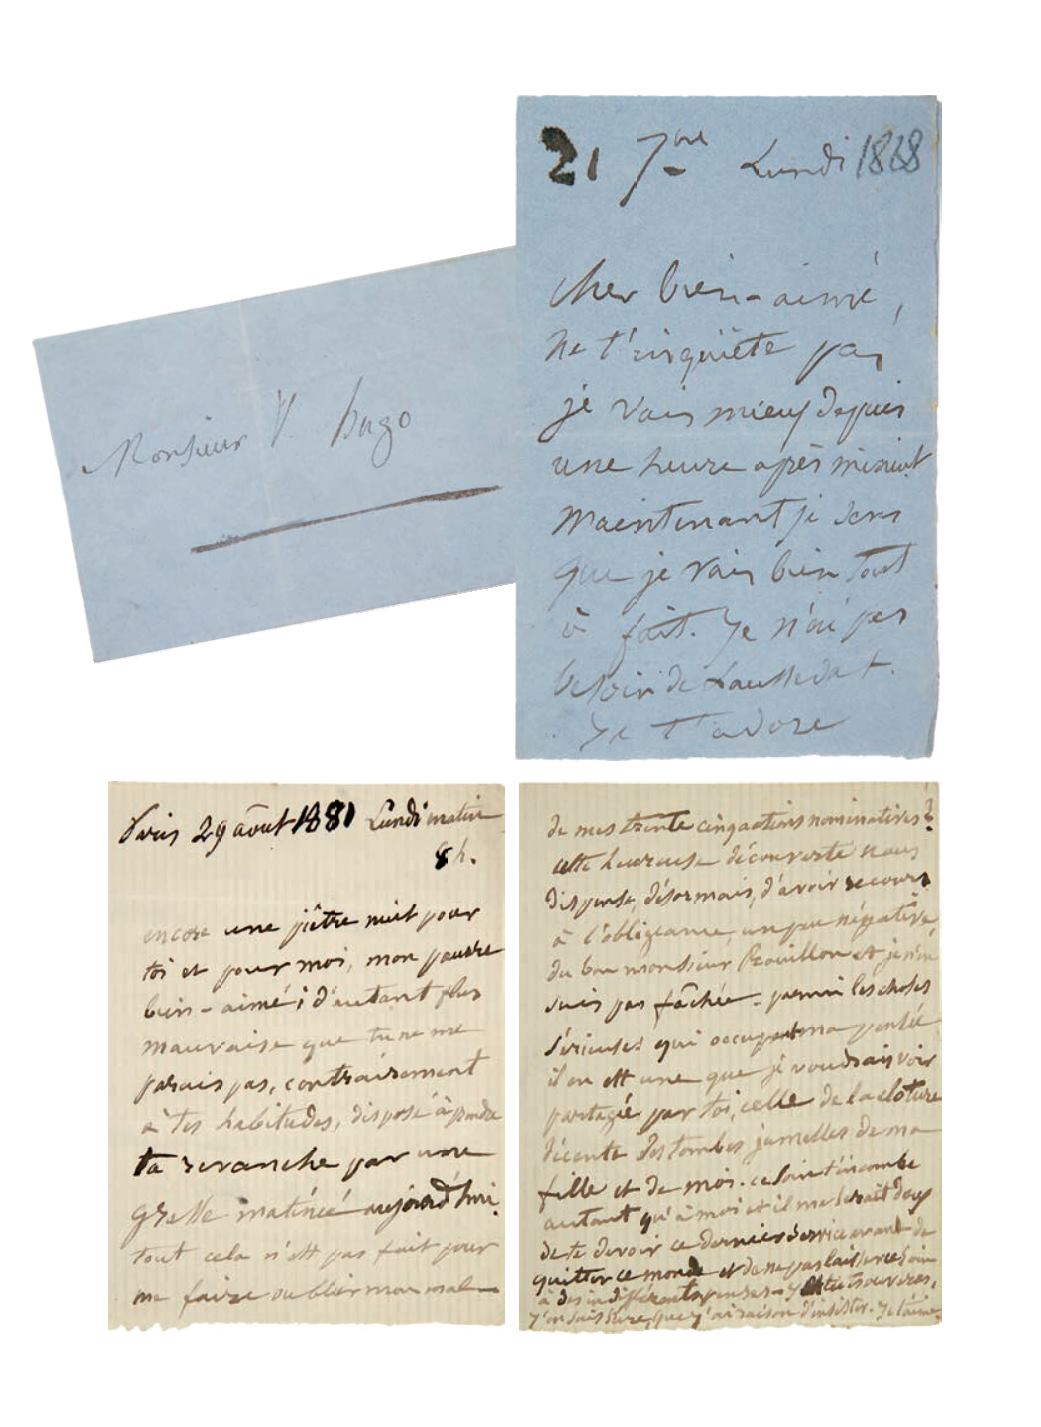 Monsieur V. hugo
21 7bre Lundi 1868
cher bien-aimé,
ne t'inquiète pas
je vais mieux depuis
une heure après minuit
maintenant je sens
que je vais bien tout
à fait. Je n'ai pas
besoin de Laussedat.
Je t'adore
Paris 29 août 1881 Lundi matin
8 h.
encore une piètre nuit pour
toi et pour moi, mon pauvre
bien-aimé ; d'autant plus
mauvaise que tu ne me
parais pas, contrairement
à tes habitudes, disposé à prendre
ta revanche par une
grasse matinée aujourd'hui.
tout cela n'est pas fait pour
me faire oublier mon mal
de mes trente cinq actions nominatives ?
cette heureuse découverte nous
dispense, désormais, d'avoir recours
à l'obligeance, un peu négative,
du bon monsieur Prouillon et je n'en
suis pas fâchée. parmi les choses
sérieuses qui occupent ma pensée
il en est une que je voudrais voir
partagée par toi, celle de la cloture
décente des tombes jumelles de ma
fille et de moi. ce soin t'incombe
autant qu'à moi et il me serait doux
de te devoir ce dernier service avant de
quitter ce monde et de ne pas laisser ce soin
à des indifférents
j'en suis sure, que j'ai raison d'insister. Je t'aime